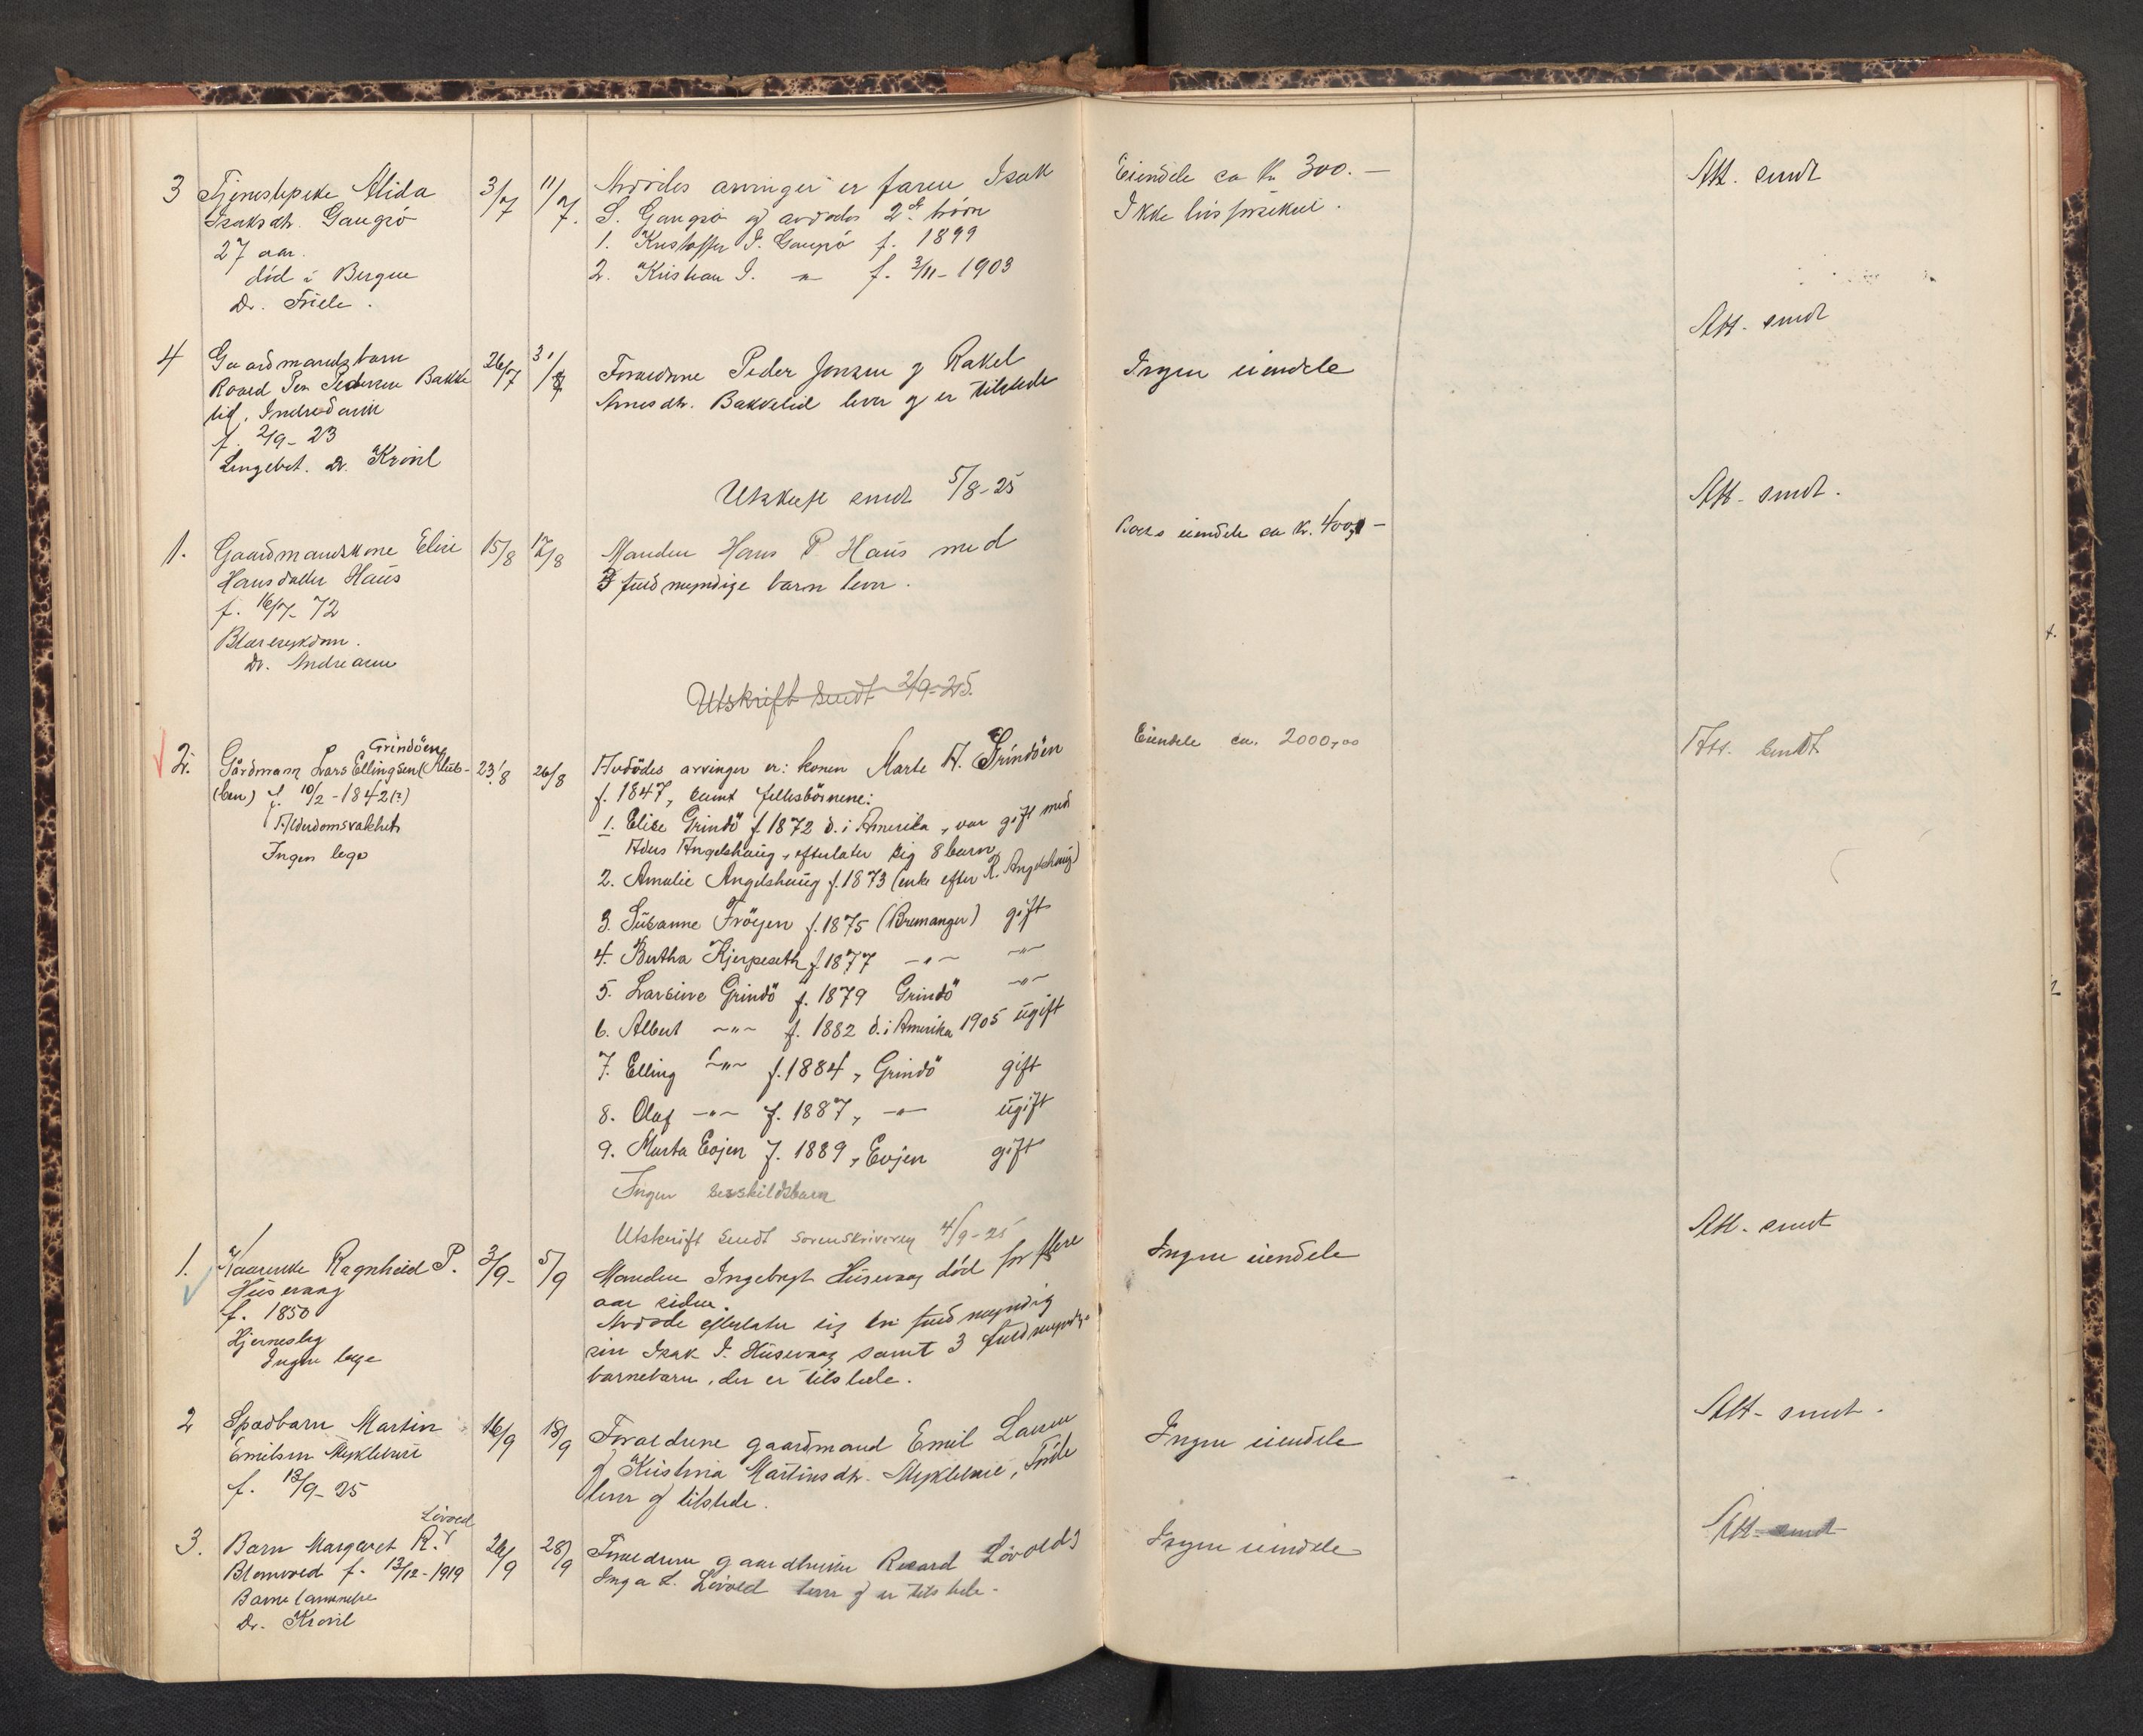 3 Tjenestepike Alida 3/7 11/7 Avdødes arvinger er faren Isak Eiendele ca kr 300.- Att. sendt
Isaksdtr. Gangsö S. Gangsö og avdødes 2de brörn Ikke livsforsikret.
27 aar. 1. Kristoffer I. Gangsö f. 1899
död i Bergen 2. Kristian I. -"- f. 3/11-1903
Dr. Friele.
4 Gaardmandsbarn 26/7 31/7 Forældrene Peder Jonsen og Rakel Ingen eiendele Att. sendt
Roald Pedersen Bakke
lid, Indredavik Arnesdtr. Bakkelid lever og er tilstede
f. 2/9-23
Lungebet. Dr. Kroni
Utskrift sendt 5/8-25
1. Gaardmandskone Elise 15/8 17/8 Manden Hans P. Haus med Boets eiendele ca kr. 400,- Att. sendt.
Hansdatter Haus 3 fuldmyndige barn lever.
f. 16/7-72
Blæresykdom.
Dr. Andreassen
Utskrift sendt 2/9-25.
2. Gårdmann Lars Ellingsen Grindöen (Klub- 23/8 26/8 Avdödes arvinger er: konen Marte A. Grindöen Eiendele ca. 2000,00 Att. sendt
(ben) f. 10/2-1842(?) f. 1847, samt fellesbörnene:
Alderdomsvakhet 1. Elise Grindö f. 1872 d. i Amerika, var gift med
Ingen lege Anders Angelshaug, efterlater sig 8 barn
2. Amalie Angelshaug f. 1873 (enke efter R. Angelshaug)
3. Susanne Fröyen f. 1875 (Bremanger) gift
4. Bertha Kjerpeseth f. 1877 -"- -"-
5. Larsine Grindö f. 1879 Grindö -"-
6. Albert -"- f. 1882 d. i Amerika 1905 ugift
7. Elling -"- f. 1884, Grindö gift
8. Olaf -"- f. 1887, -"- ugift
9. Marta Evjen f. 1889, Evjen gift
Ingen særskildsbarn
Utskrift sendt sorenskriveren 4/9-25
1. Kaarenke Ragnheid P. 3/9- 5/9 Manden Ingebrigt Husevaag död for flere Ingen eiendele Att. sendt
Husevaag aar siden.
f. 1850 Avdöde efterlater sig en fuldmyndig
Hjerneslag sön Isak I. Husevaag samt 3 fuldmyndige
Ingen læge barnebarn, der er tilstede.
2 Spædbarn Martin 16/9 18/9 Forældrene gaardmand Emil Larsen Ingen eiendele Att. sendt.
Emilsen Myklebust og Kristina Martinsdtr. Myklebust,
f. 13/9-25 lever og tilstede.
3. Barn Margaret R. Lövold 26/9 28/9 Forældrene gaardbruker Rikard Lövold og Ingen eiendele Att. sendt
f. 13/12-1919 Inga L. Lövold lever og er tilstede.
Barnelammelse
Dr. Kroni